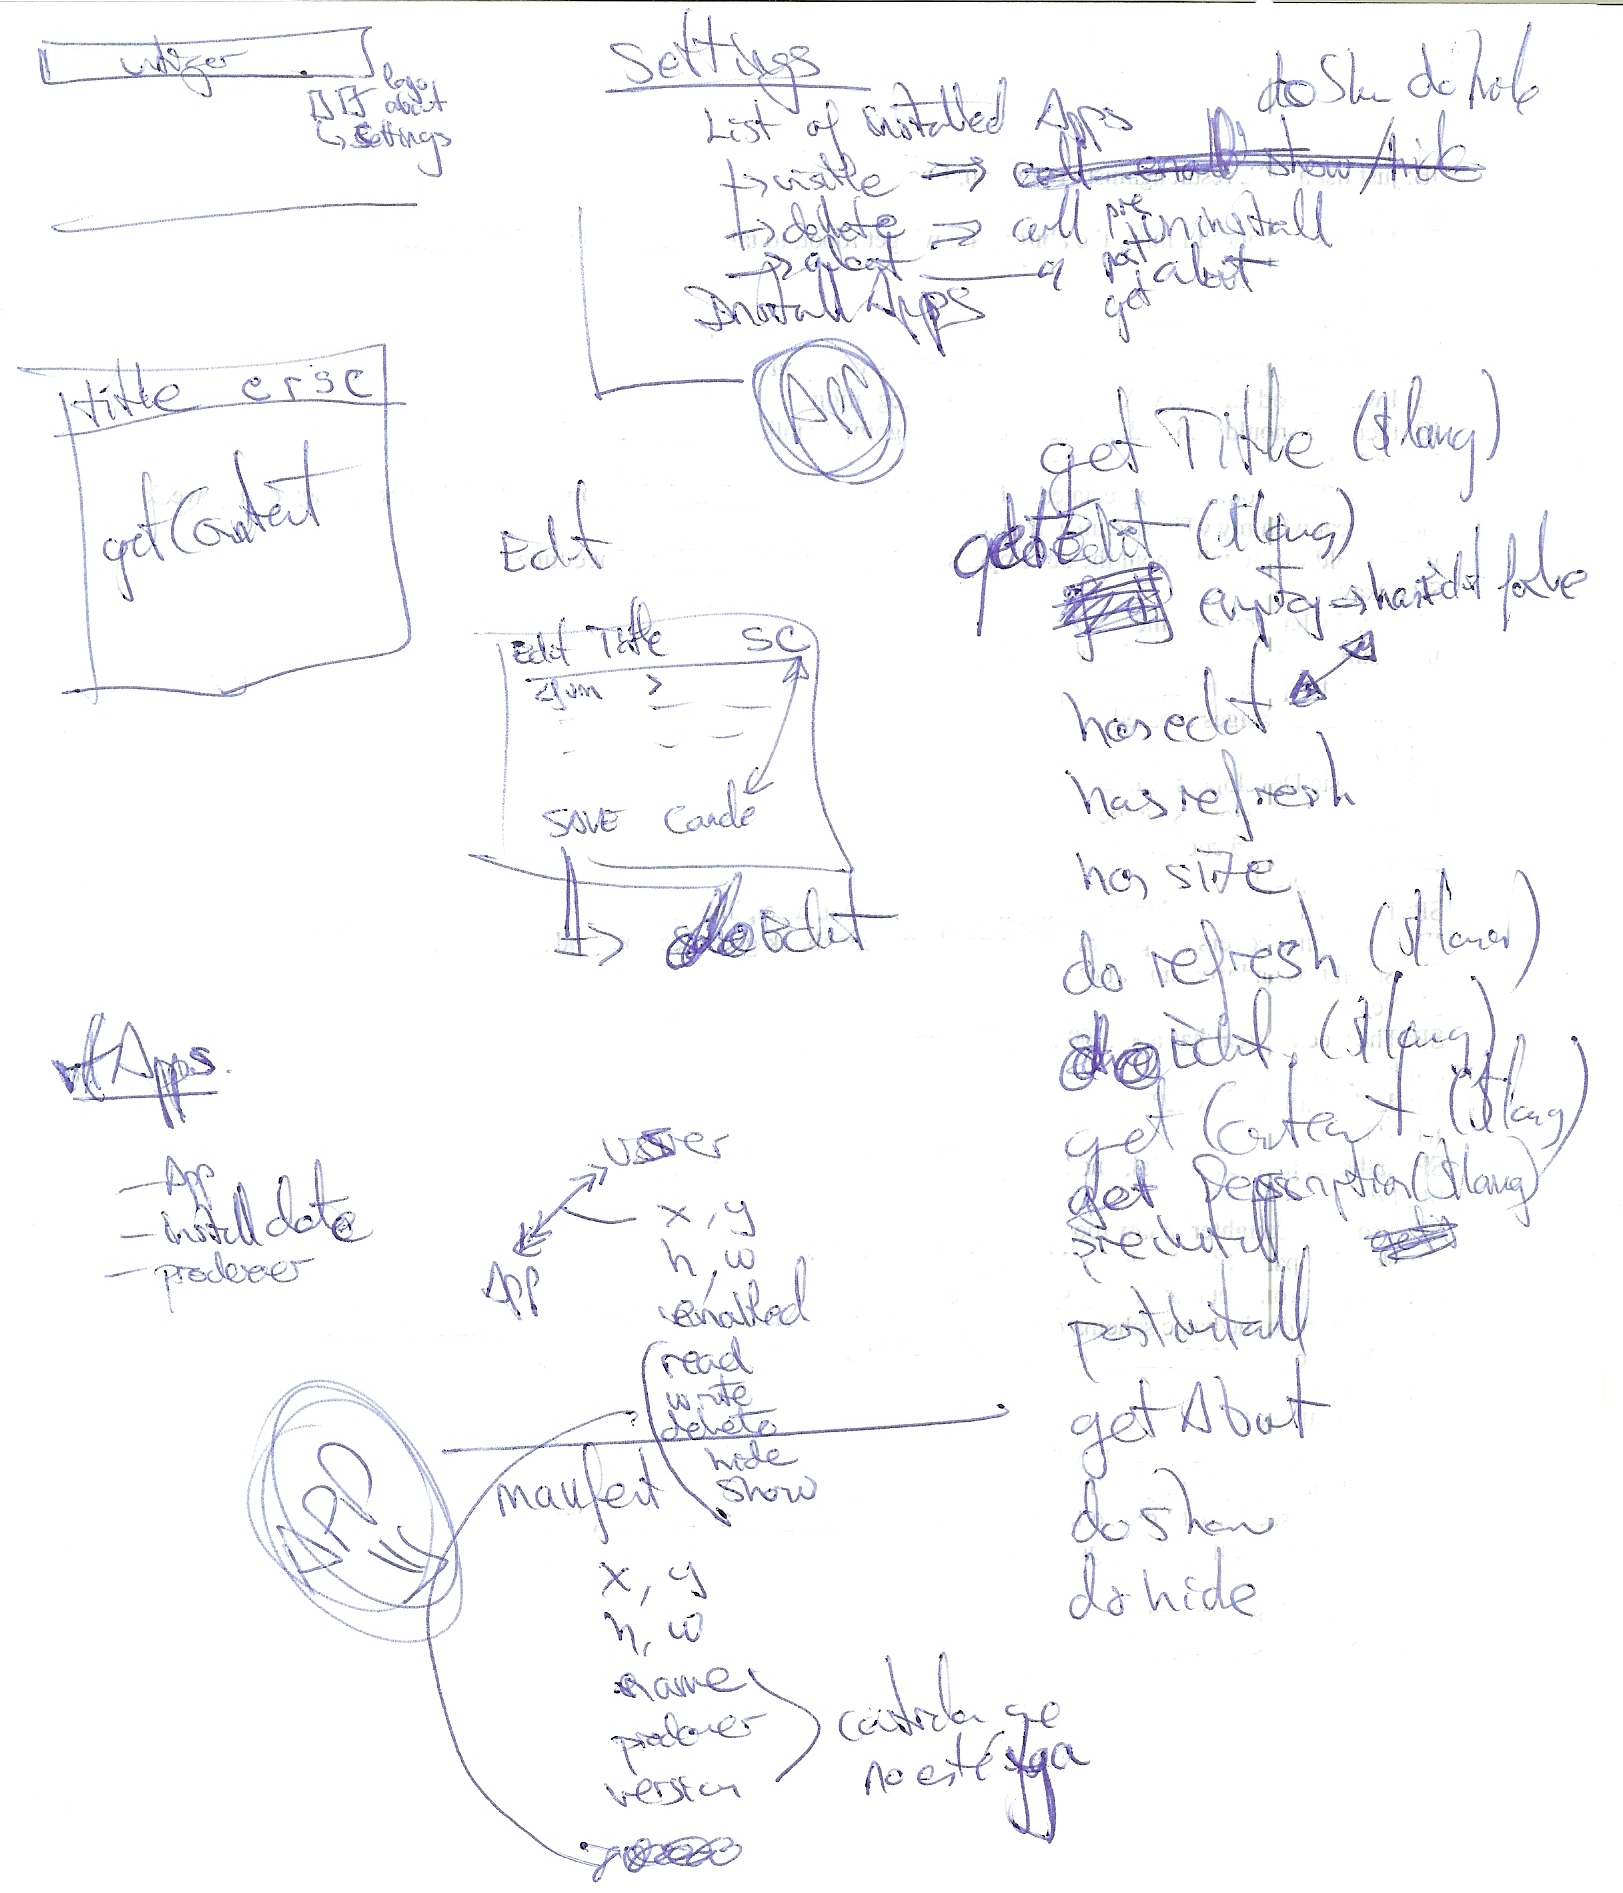 logo
about
settings
Settings
List of installed Apps
visible
delete => call pre uninstall
post
about
get about
Install Apps
do Show do hide
show/hide
APP
title e r s c
getContent
Edit
Edit Title SC
SAVE Cancle
doEdit
get Title ($lang)
getEdit ($lang)
empty → hasEdit false
has edit
has refresh
has size
do refresh ($lang)
doEdit ($lang)
get Content ($lang)
get Description ($lang)
preinstall
postinstall
get About
do show
do hide
Apps
- App
- install date
- producer
user
App
x, y
h, w
enabled
read
write
delete
hide
show
APP
manifest
x, y
h, w
name
producer
version
no esté ya